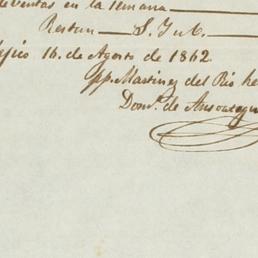 ventas en la semana
Restan S. Y u C.
16. de Agosto de 1862
pp. Martinez del Rio he
Dom.º de Ansoategui